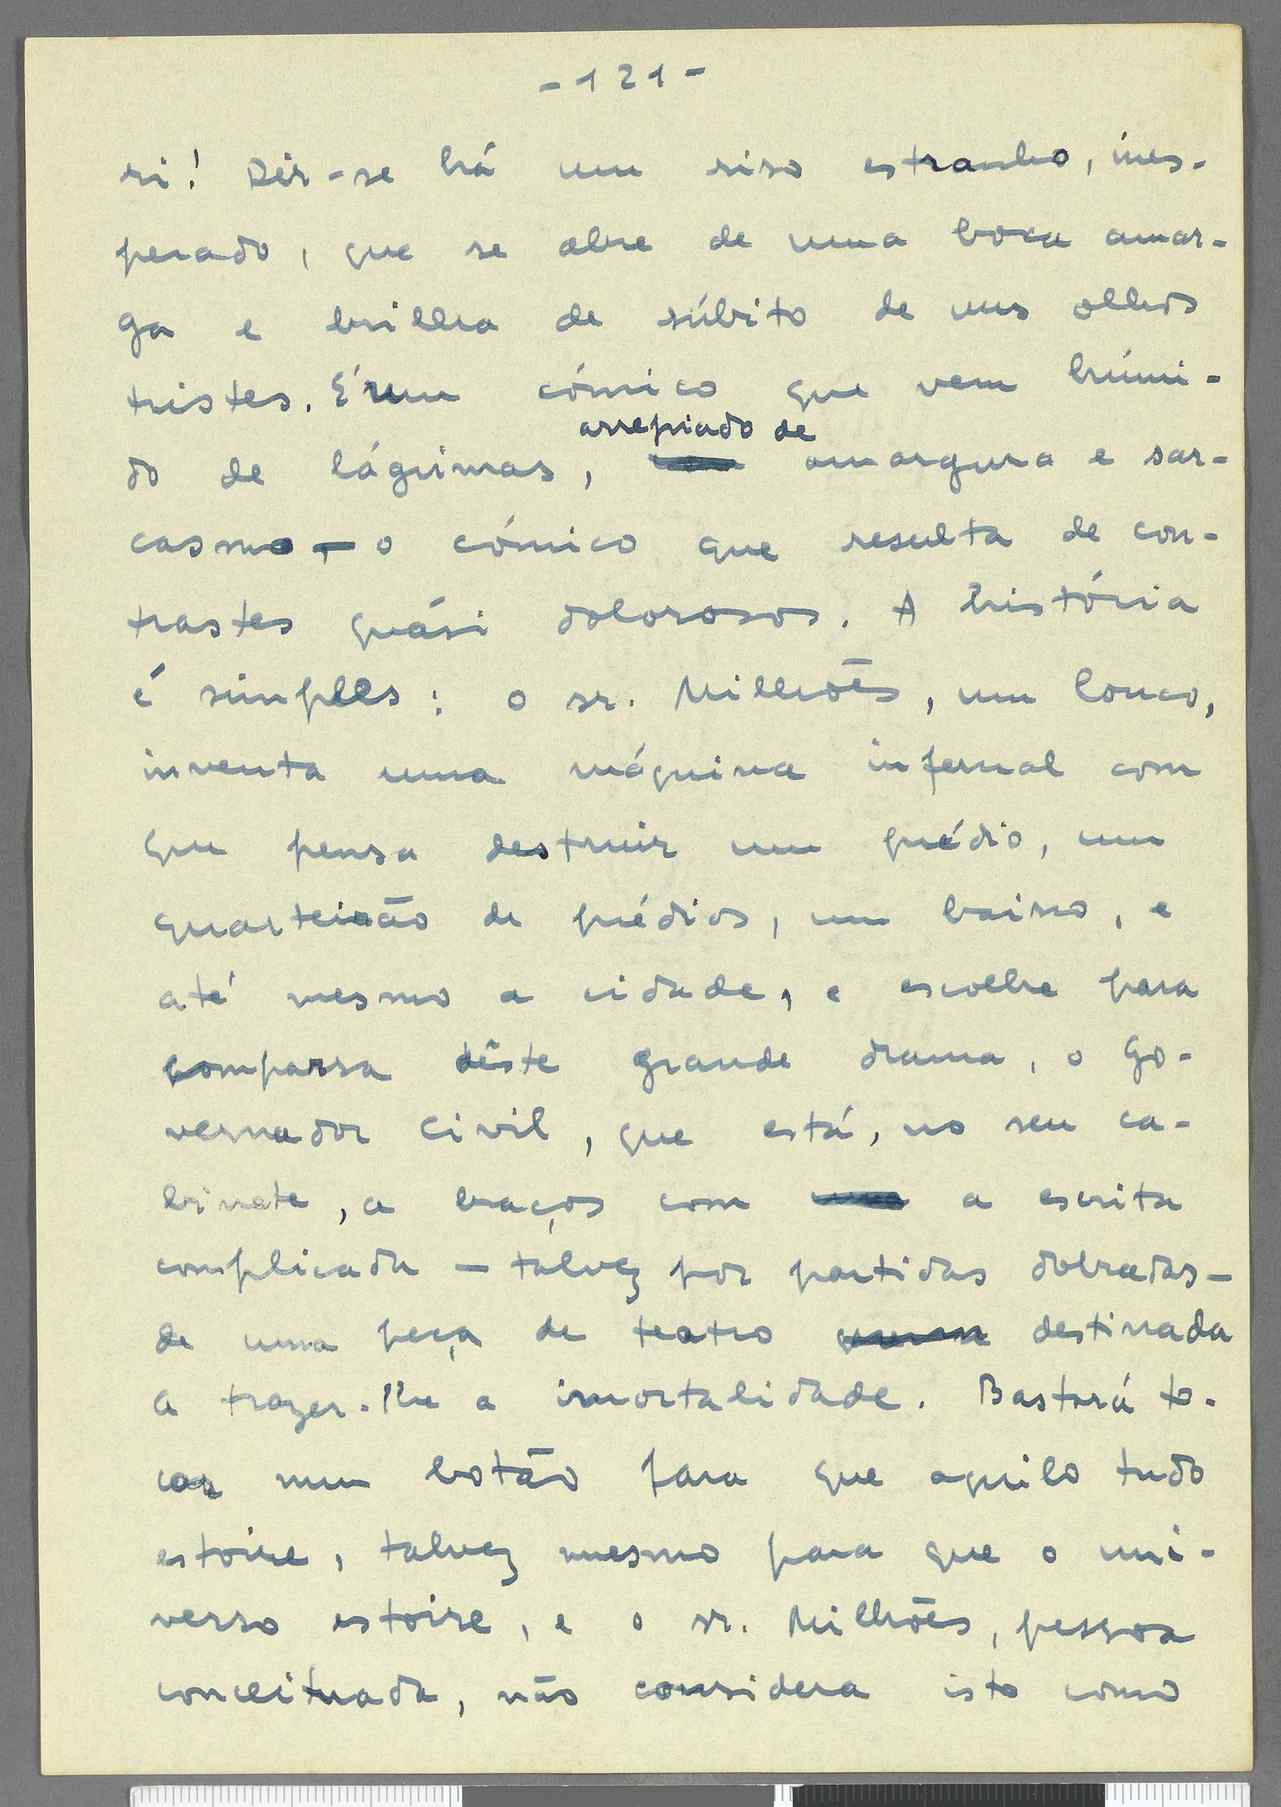 - 121 -
ri! Dir-se há um riso estranho, ines-
perado, que se abre de uma boca amar-
ga e brilha de súbito de uns olhos
tristes. É um cómico que vem húmi-
do de lágrimas, arrepiado de amargura e sar-
casmo, — o cómico que resulta de con-
trastes quási dolorosos. A história
é simples: o sr. Milhões, um louco,
inventa uma máquina infernal com
que pensa destruir um prédio, um
quarteirão de prédios, um bairro, e
até mesmo a cidade, e escolhe para
comparsa dêste grande drama, o Go-
vernador Civil, que está, no seu ca-
binete, a braços com a escrita
complicada — talvez por partidas dobradas —
de uma peça de teatro destinada
a trazer-lhe a imortalidade. Bastará to-
car num botão para que aquilo tudo
estoire, talvez mesmo para que o uni-
verso estoire, e o sr. Milhões, pessoa
conceituada, não considera isto como